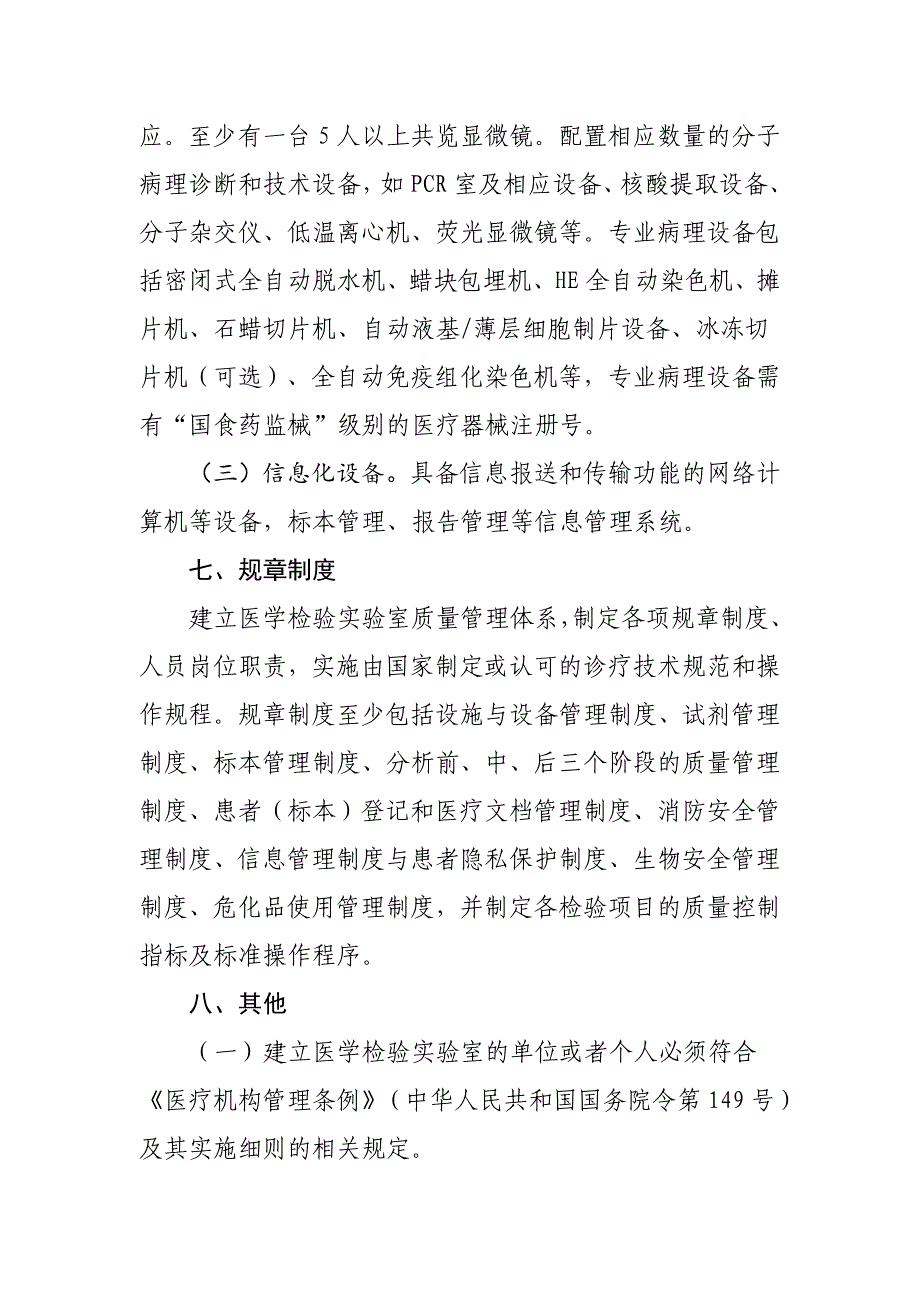 应。至少有一台 5 人以上共览显微镜。配置相应数量的分子
病理诊断和技术设备，如 PCR 室及相应设备、核酸提取设备、
分子杂交仪、低温离心机、荧光显微镜等。专业病理设备包
括密闭式全自动脱水机、蜡块包埋机、HE 全自动染色机、摊
片机、石蜡切片机、自动液基/薄层细胞制片设备、冰冻切
片机（可选）、全自动免疫组化染色机等，专业病理设备需
有“国食药监械”级别的医疗器械注册号。
（三）信息化设备。具备信息报送和传输功能的网络计
算机等设备，标本管理、报告管理等信息管理系统。
七、规章制度
建立医学检验实验室质量管理体系，制定各项规章制度、
人员岗位职责，实施由国家制定或认可的诊疗技术规范和操
作规程。规章制度至少包括设施与设备管理制度、试剂管理
制度、标本管理制度、分析前、中、后三个阶段的质量管理
制度、患者（标本）登记和医疗文档管理制度、消防安全管
理制度、信息管理制度与患者隐私保护制度、生物安全管理
制度、危化品使用管理制度，并制定各检验项目的质量控制
指标及标准操作程序。
八、其他
（一）建立医学检验实验室的单位或者个人必须符合
《医疗机构管理条例》（中华人民共和国国务院令第 149 号）
及其实施细则的相关规定。